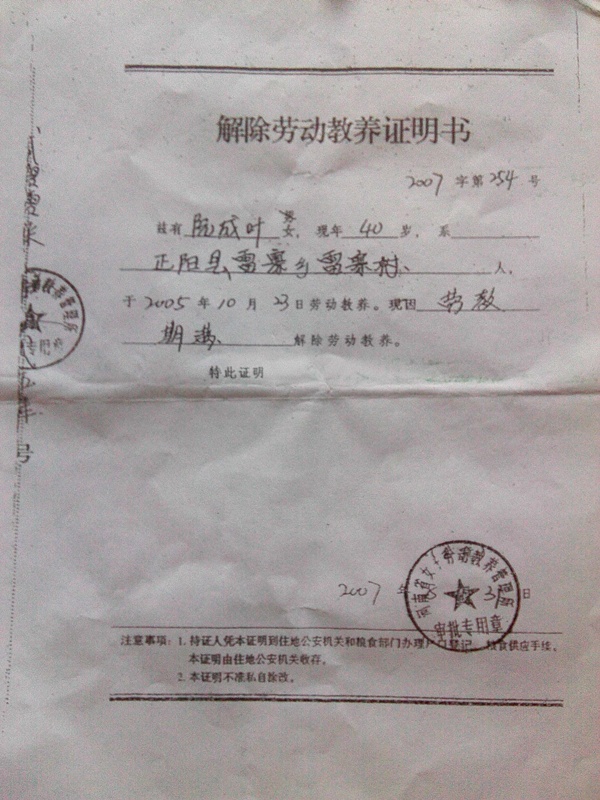 解除劳动教养证明书
2007 字第 254 号
兹有 成叶 男 女，现年 40 岁，系
正阳县 雷寨乡 雷寨村、人，
于 2005 年 10 月 23 日劳动教养。现因 劳教
期满、解除劳动教养。
特此证明
2007 年 日
河南省女子劳动教养管理所
审批专用章
注意事项：1. 持证人凭本证明到住地公安机关和粮食部门办理户口登记、粮食供应手续。
本证明由住地公安机关收存。
2. 本证明不准私自涂改。
教养管理所
专用章
号